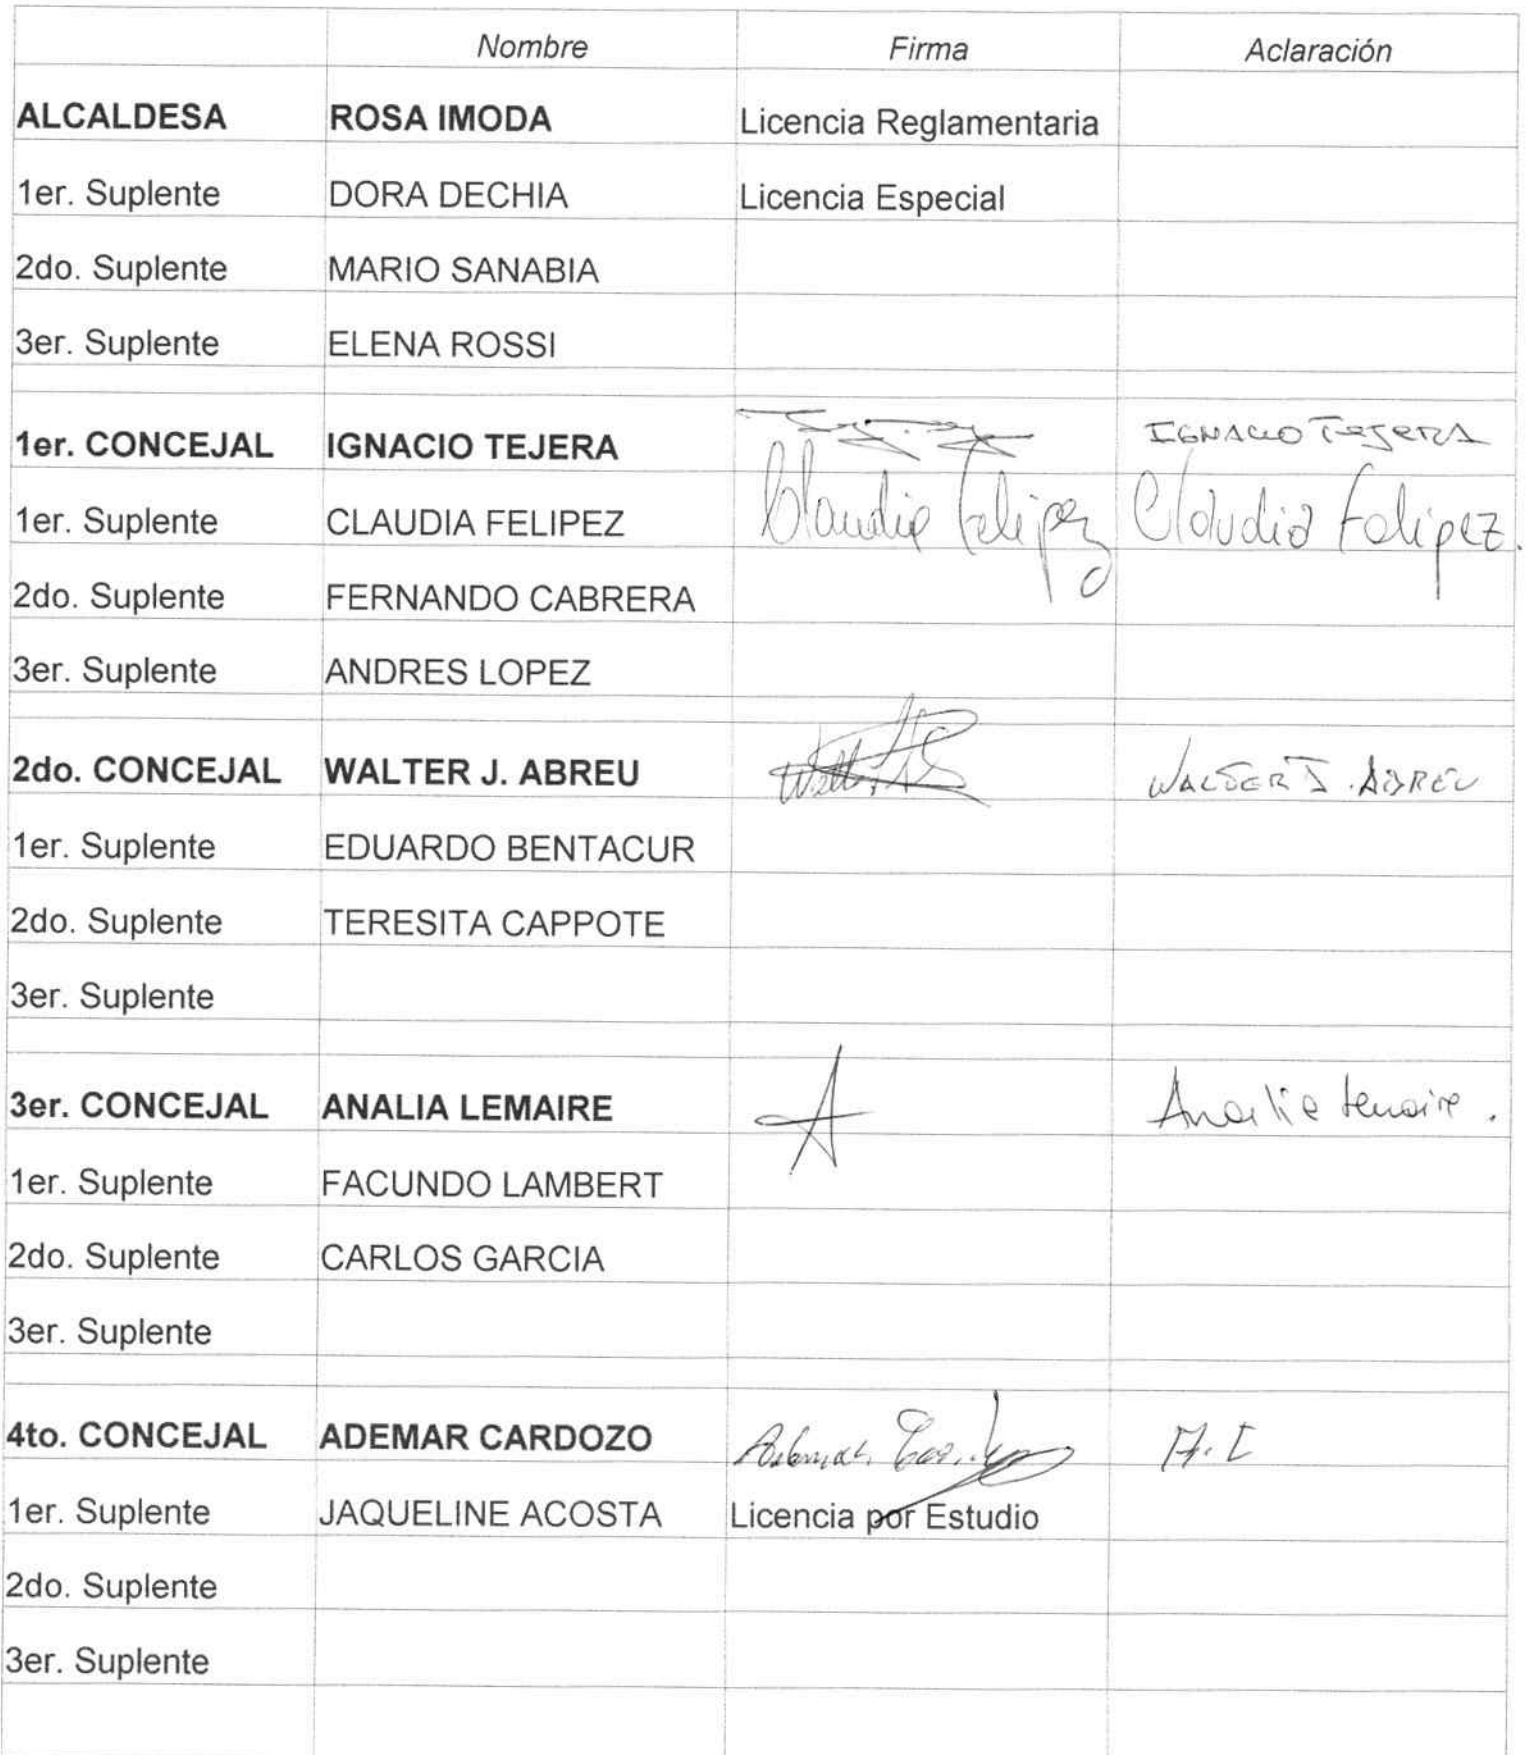 Nombre Firma Aclaración
ALCALDESA ROSA IMODA Licencia Reglamentaria
1er. Suplente DORA DECHIA Licencia Especial
2do. Suplente MARIO SANABIA
3er. Suplente ELENA ROSSI
1er. CONCEJAL IGNACIO TEJERA IGNACIO TEJERA
1er. Suplente CLAUDIA FELIPEZ Claudia Felipez Claudia Felipez.
2do. Suplente FERNANDO CABRERA
3er. Suplente ANDRES LOPEZ
2do. CONCEJAL WALTER J. ABREU WALTER J. ABREU
1er. Suplente EDUARDO BENTACUR
2do. Suplente TERESITA CAPPOTE
3er. Suplente
3er. CONCEJAL ANALIA LEMAIRE A Analia Lemaire.
1er. Suplente FACUNDO LAMBERT
2do. Suplente CARLOS GARCIA
3er. Suplente
4to. CONCEJAL ADEMAR CARDOZO Ademar A. C
1er. Suplente JAQUELINE ACOSTA Licencia por Estudio
2do. Suplente
3er. Suplente